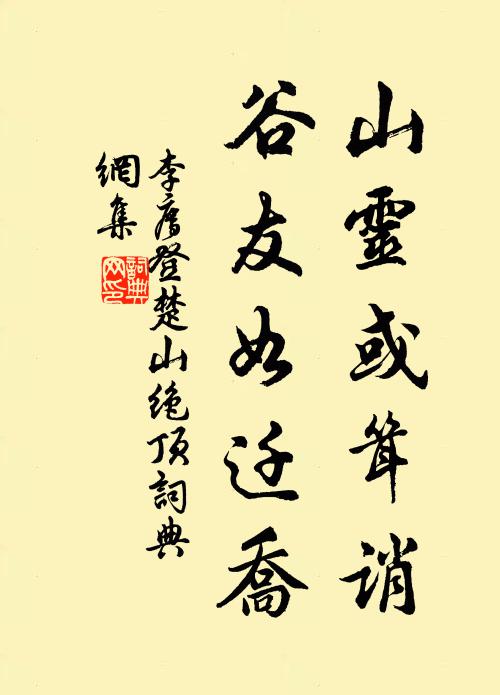 山靈或耸誚
谷友如迁喬
李廌登楚山绝顶詞典
網集
詞典網印